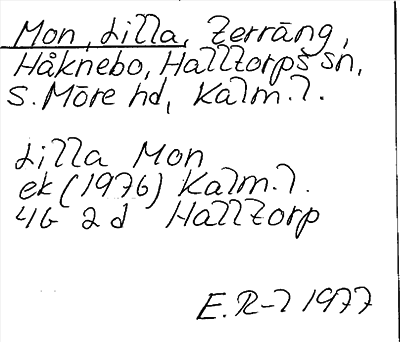 Mon, Lilla, Terräng,
Håknebo, Halltorps sn,
S. Möre hd, Kalm. l.
Lilla Mon
ek (1976) Kalm. l.
4G 2d Halltorp
E. R-l 1977